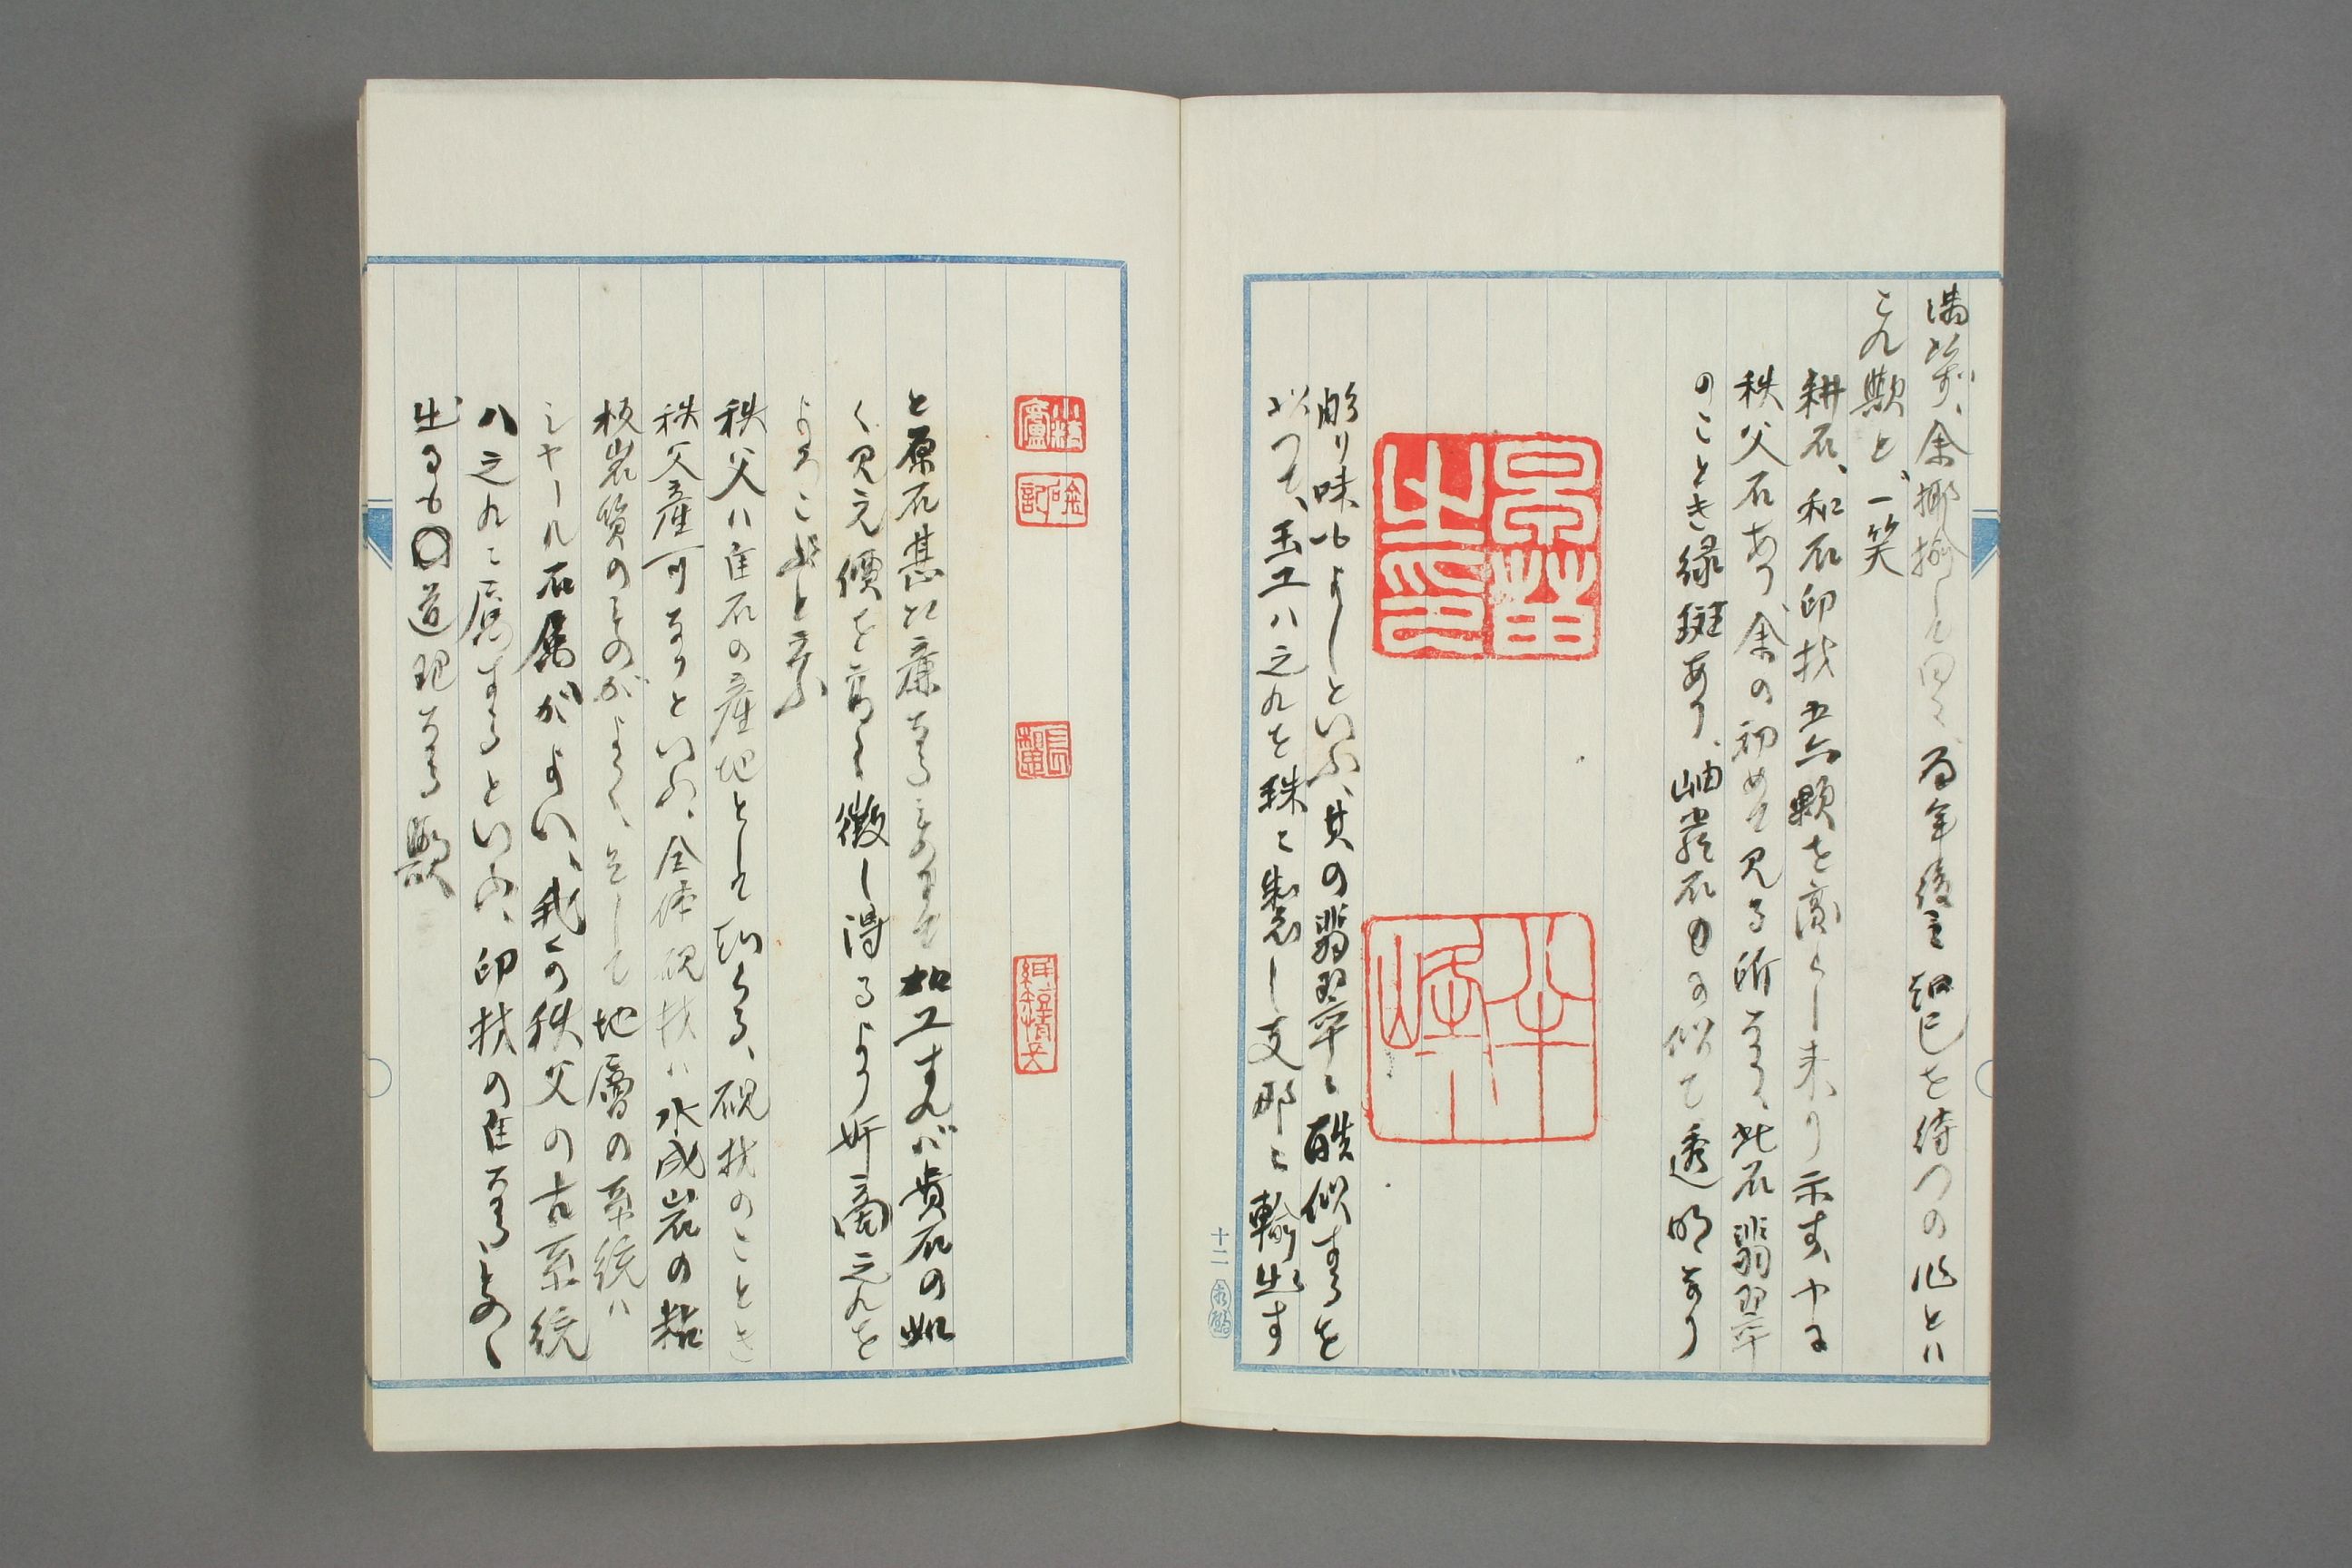 満せず、余揶揄して曰く、百年後の知己を待つの心とハ
これ歟と、一笑
耕石、和石印材五六顆を齎らし来り示す、中に
秩父石あり、余の初めて見る所なり、此石翡翠
のことき緑斑あり、岫岩石に似て透明なり
彫り味もよしといふ、其の翡翠に酷似するを
以つて、玉工ハ之れを珠に製し支那に輸出す
十二
と原石甚た廉なるものなるも加工すれバ貴石の如
く見え價を高く徴し得るより奸商之れを
よろこぶと云ふ
秩父ハ佳石の産地として聞ゆる、硯材のことき
秩父産可なりといふ、全体硯材ハ水成岩の粘
板岩質のものがよく、そして地層の系統ハ
シヤール石属がよい、我くの秩父の古系統
ハ之れに属するといふ、印材の佳なるものゝ
出るも道理なる歟